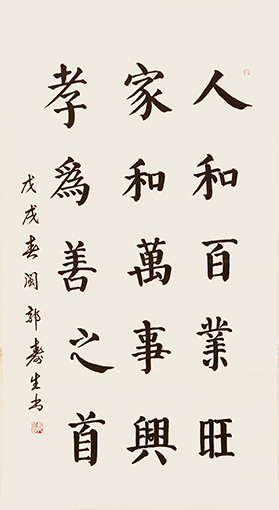 人和百業旺
家和萬事興
孝為善之首
戊戌春閩郭壽生书